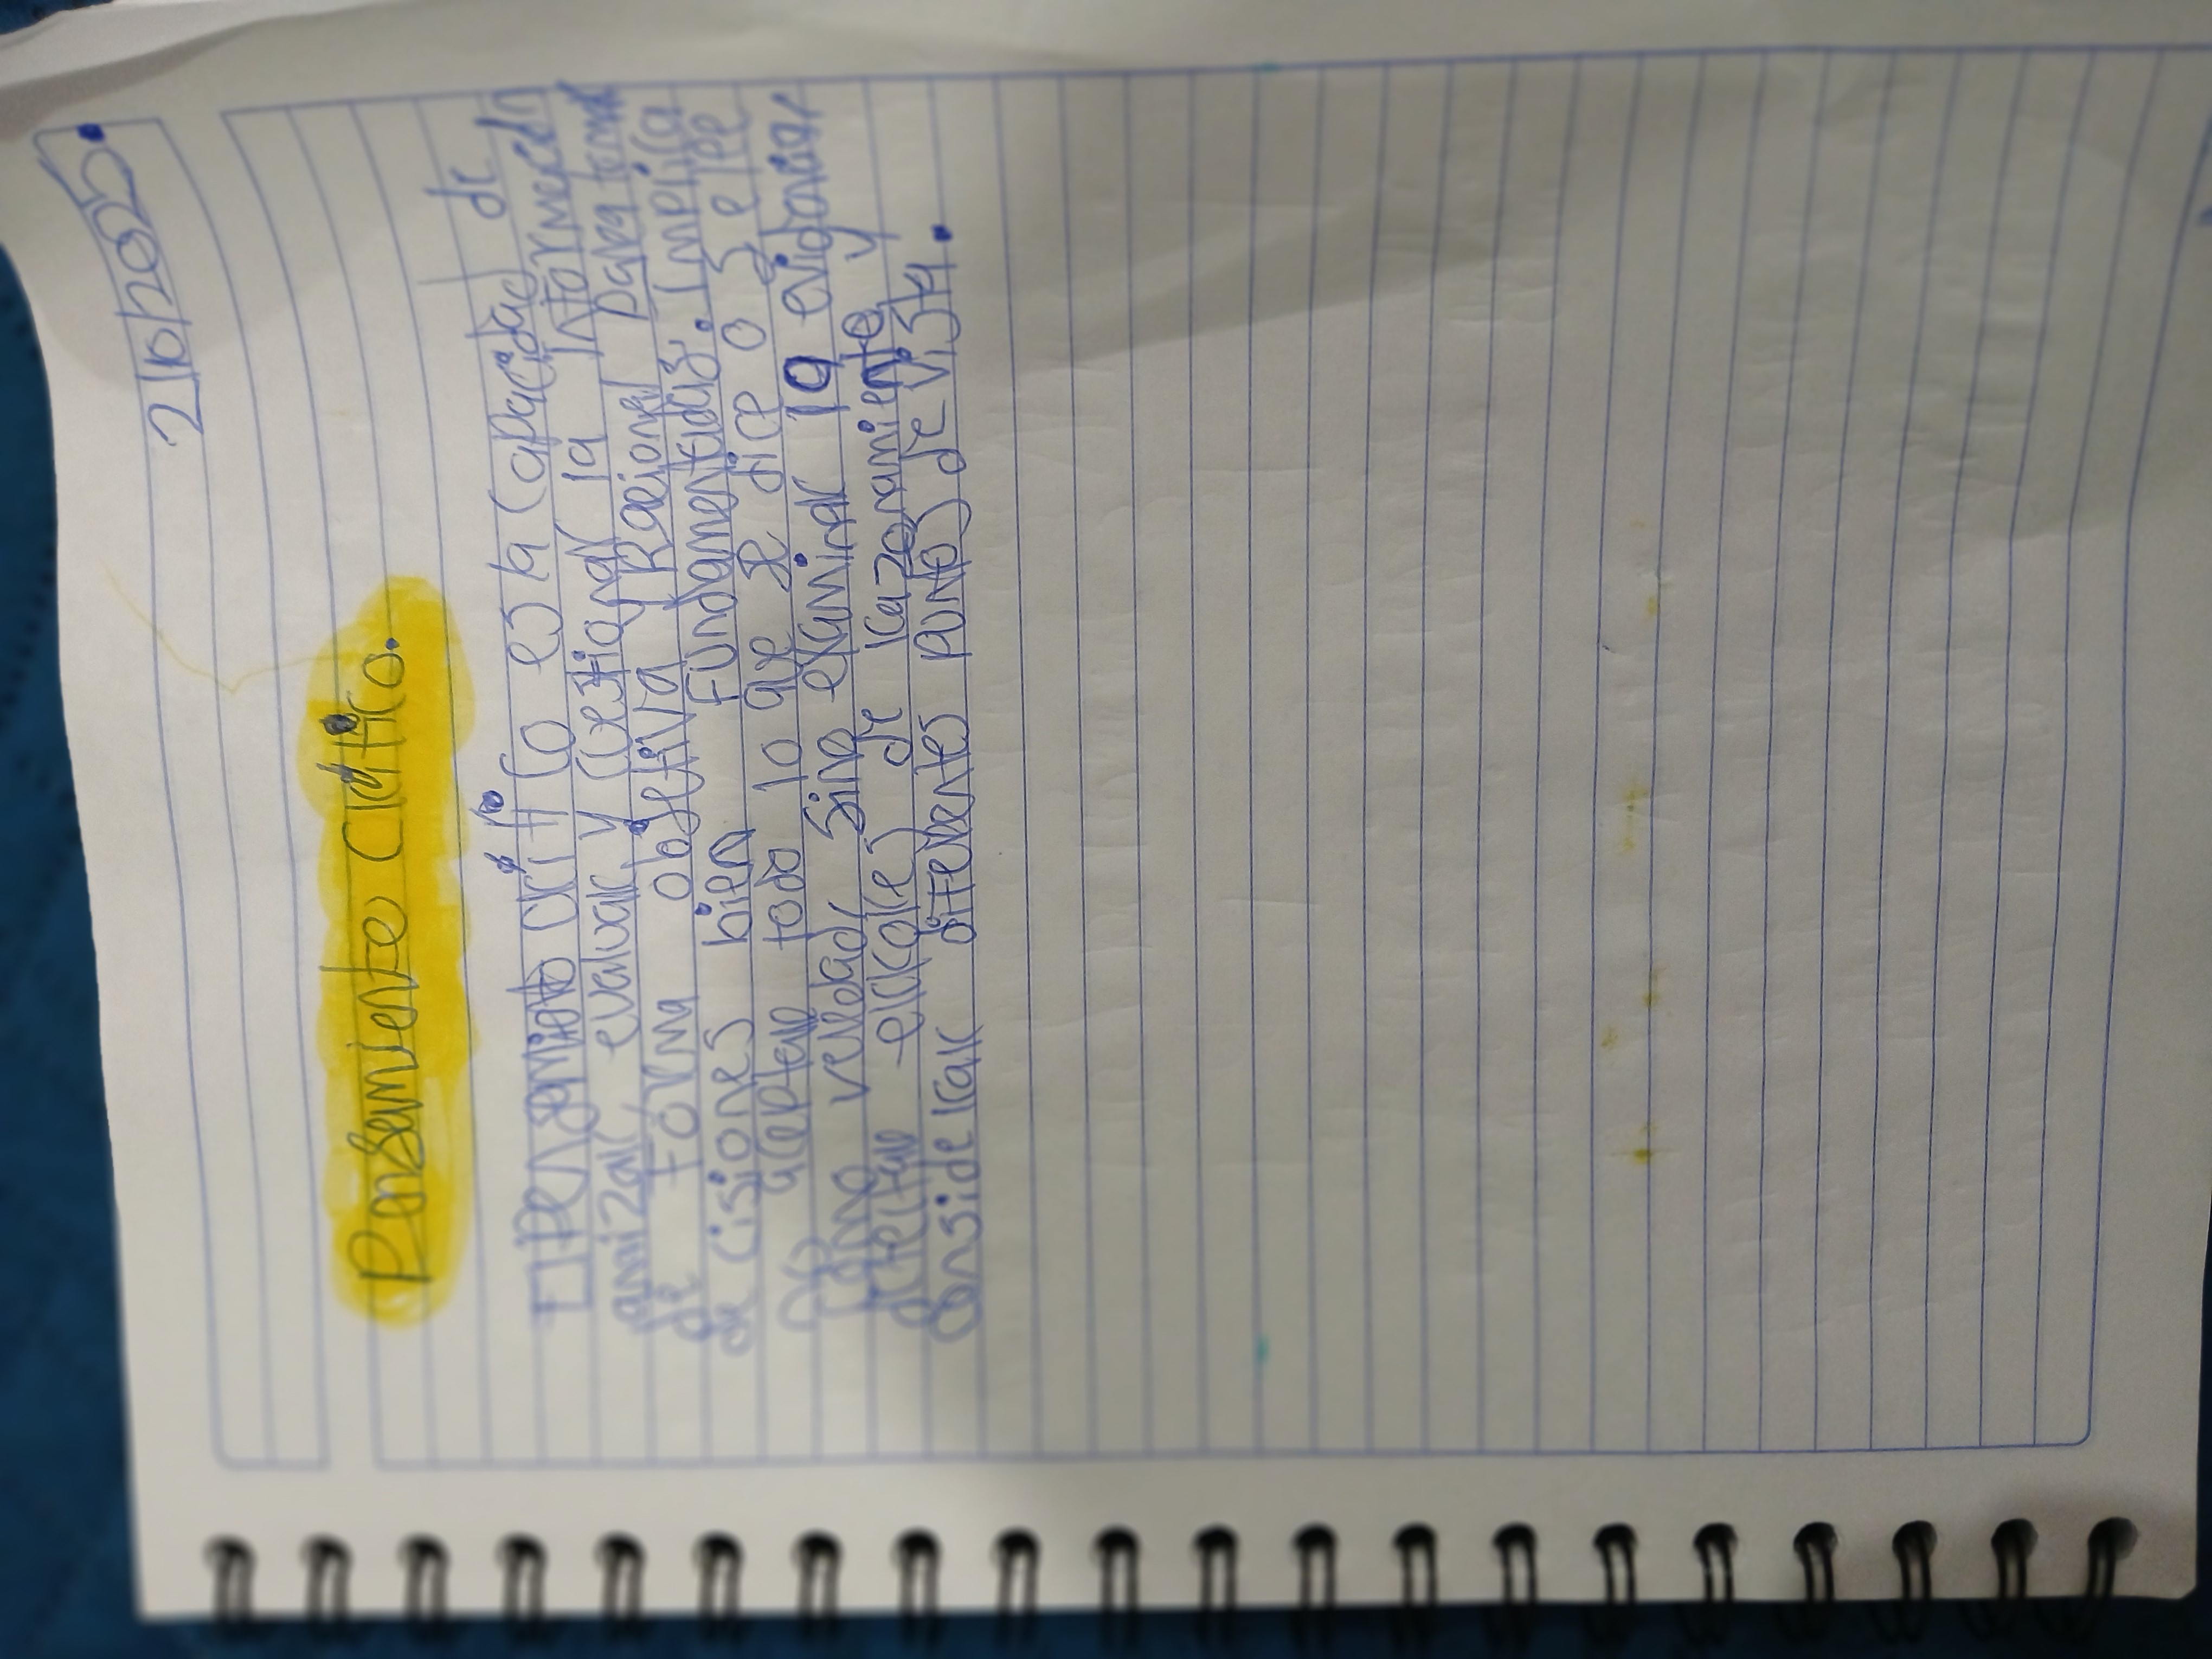 2/10/2025.
Pensamiento Critico.
Pensamiento critico es la Capacidad de
evaluar y Cuestionar la Información
de Forma objetiva y Racional para tomar
de cisiones bien Fundamentadas. Implica
aceptar todo lo que se dice o se lee
Como verdad, Sino examinar la evidencia
errores de razonamiento y
Considerar diferentes puntos de vista.